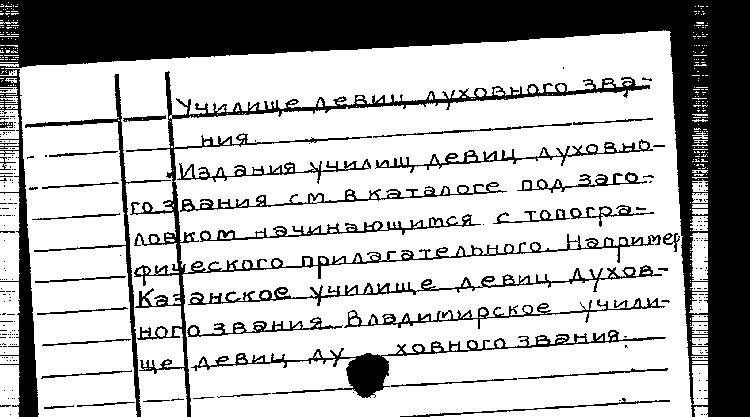 Училище девиц духовного зва-
ния.
Издания училищ девиц духовно-
го звания см. в каталоге под заго-
ловком начинающимся с топогра-
фического прилагательного. Например
Казанское училище девиц духов-
ного звания. Владимирское учили-
ще девиц духовного звания.